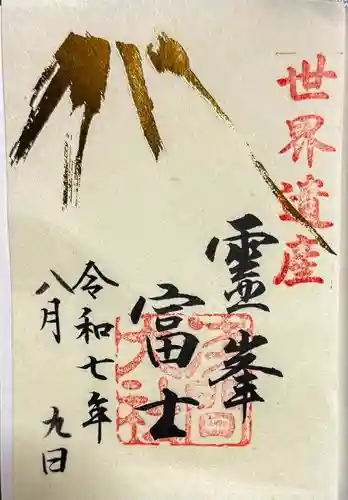 世界遺産
靈峯
富士
令和七年
八月 九日